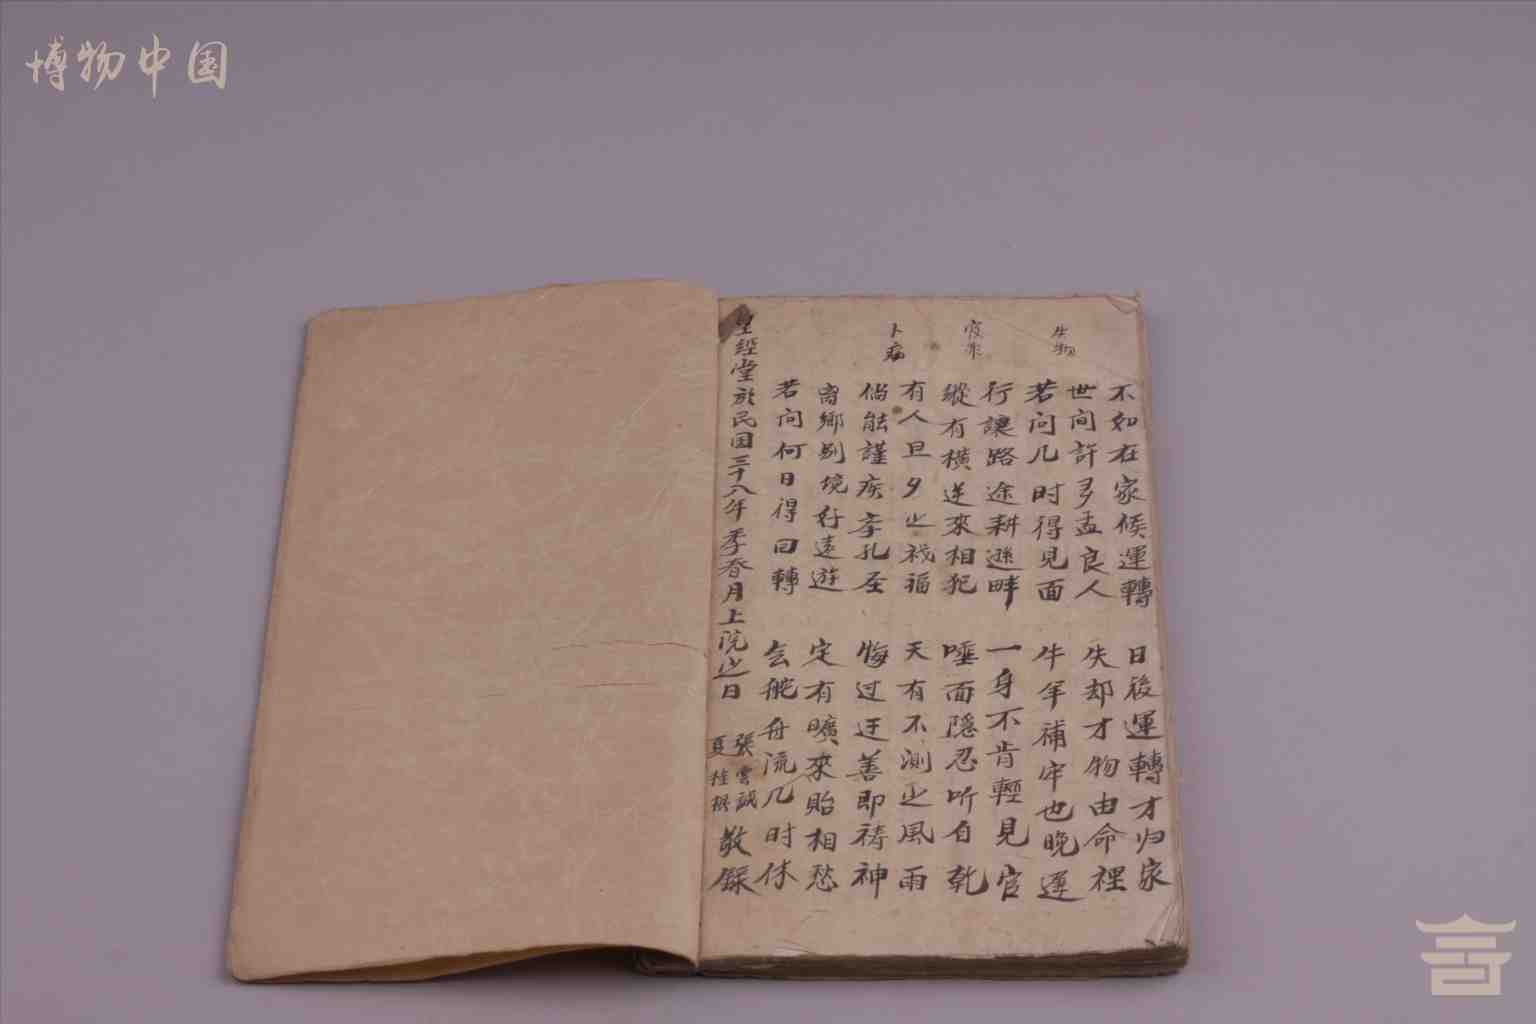 博物中国
不如在家候運轉 日後運轉才归家
失物
世间許多孟良人 失却才物由命裡
若问几时得見面 牛羊補牢也晚遲
官非
行讓路途耕遜畔 一身不肯輕見官
縱有横逆來相犯 唾面隱忍听自乾
卜病
有人旦夕之禍福 天有不测之風雨
倘能謹疾孝孔圣 悔过迁善即祷神
离鄉别境好遠遊 定有曠來貽相愁
若问何日得回轉 舵舟流几时休
皇經堂於民国三十八年季春月上院之日 張雲誠 夏桂 敬録